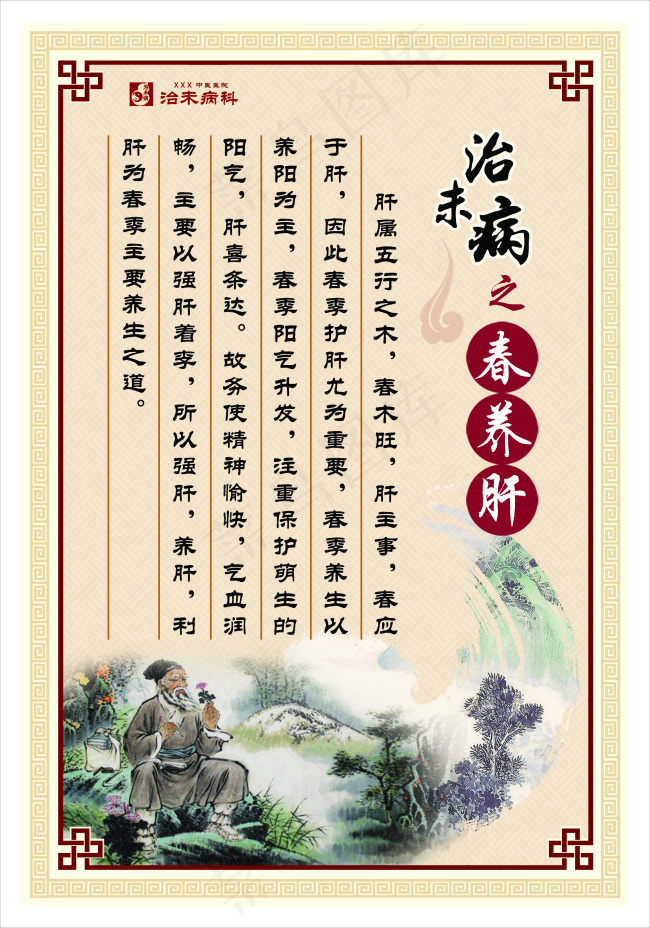 XXX中医医院
治未病科
治未病之春养肝
肝属五行之木，春木旺，肝主事，春应
于肝，因此春季护肝尤为重要，春季养生以
养阳为主，春季阳气升发，注重保护萌生的
阳气，肝喜条达。故务使精神愉快，气血润
畅，主要以强肝着李，所以强肝，养肝，利
肝为春季主要养生之道。